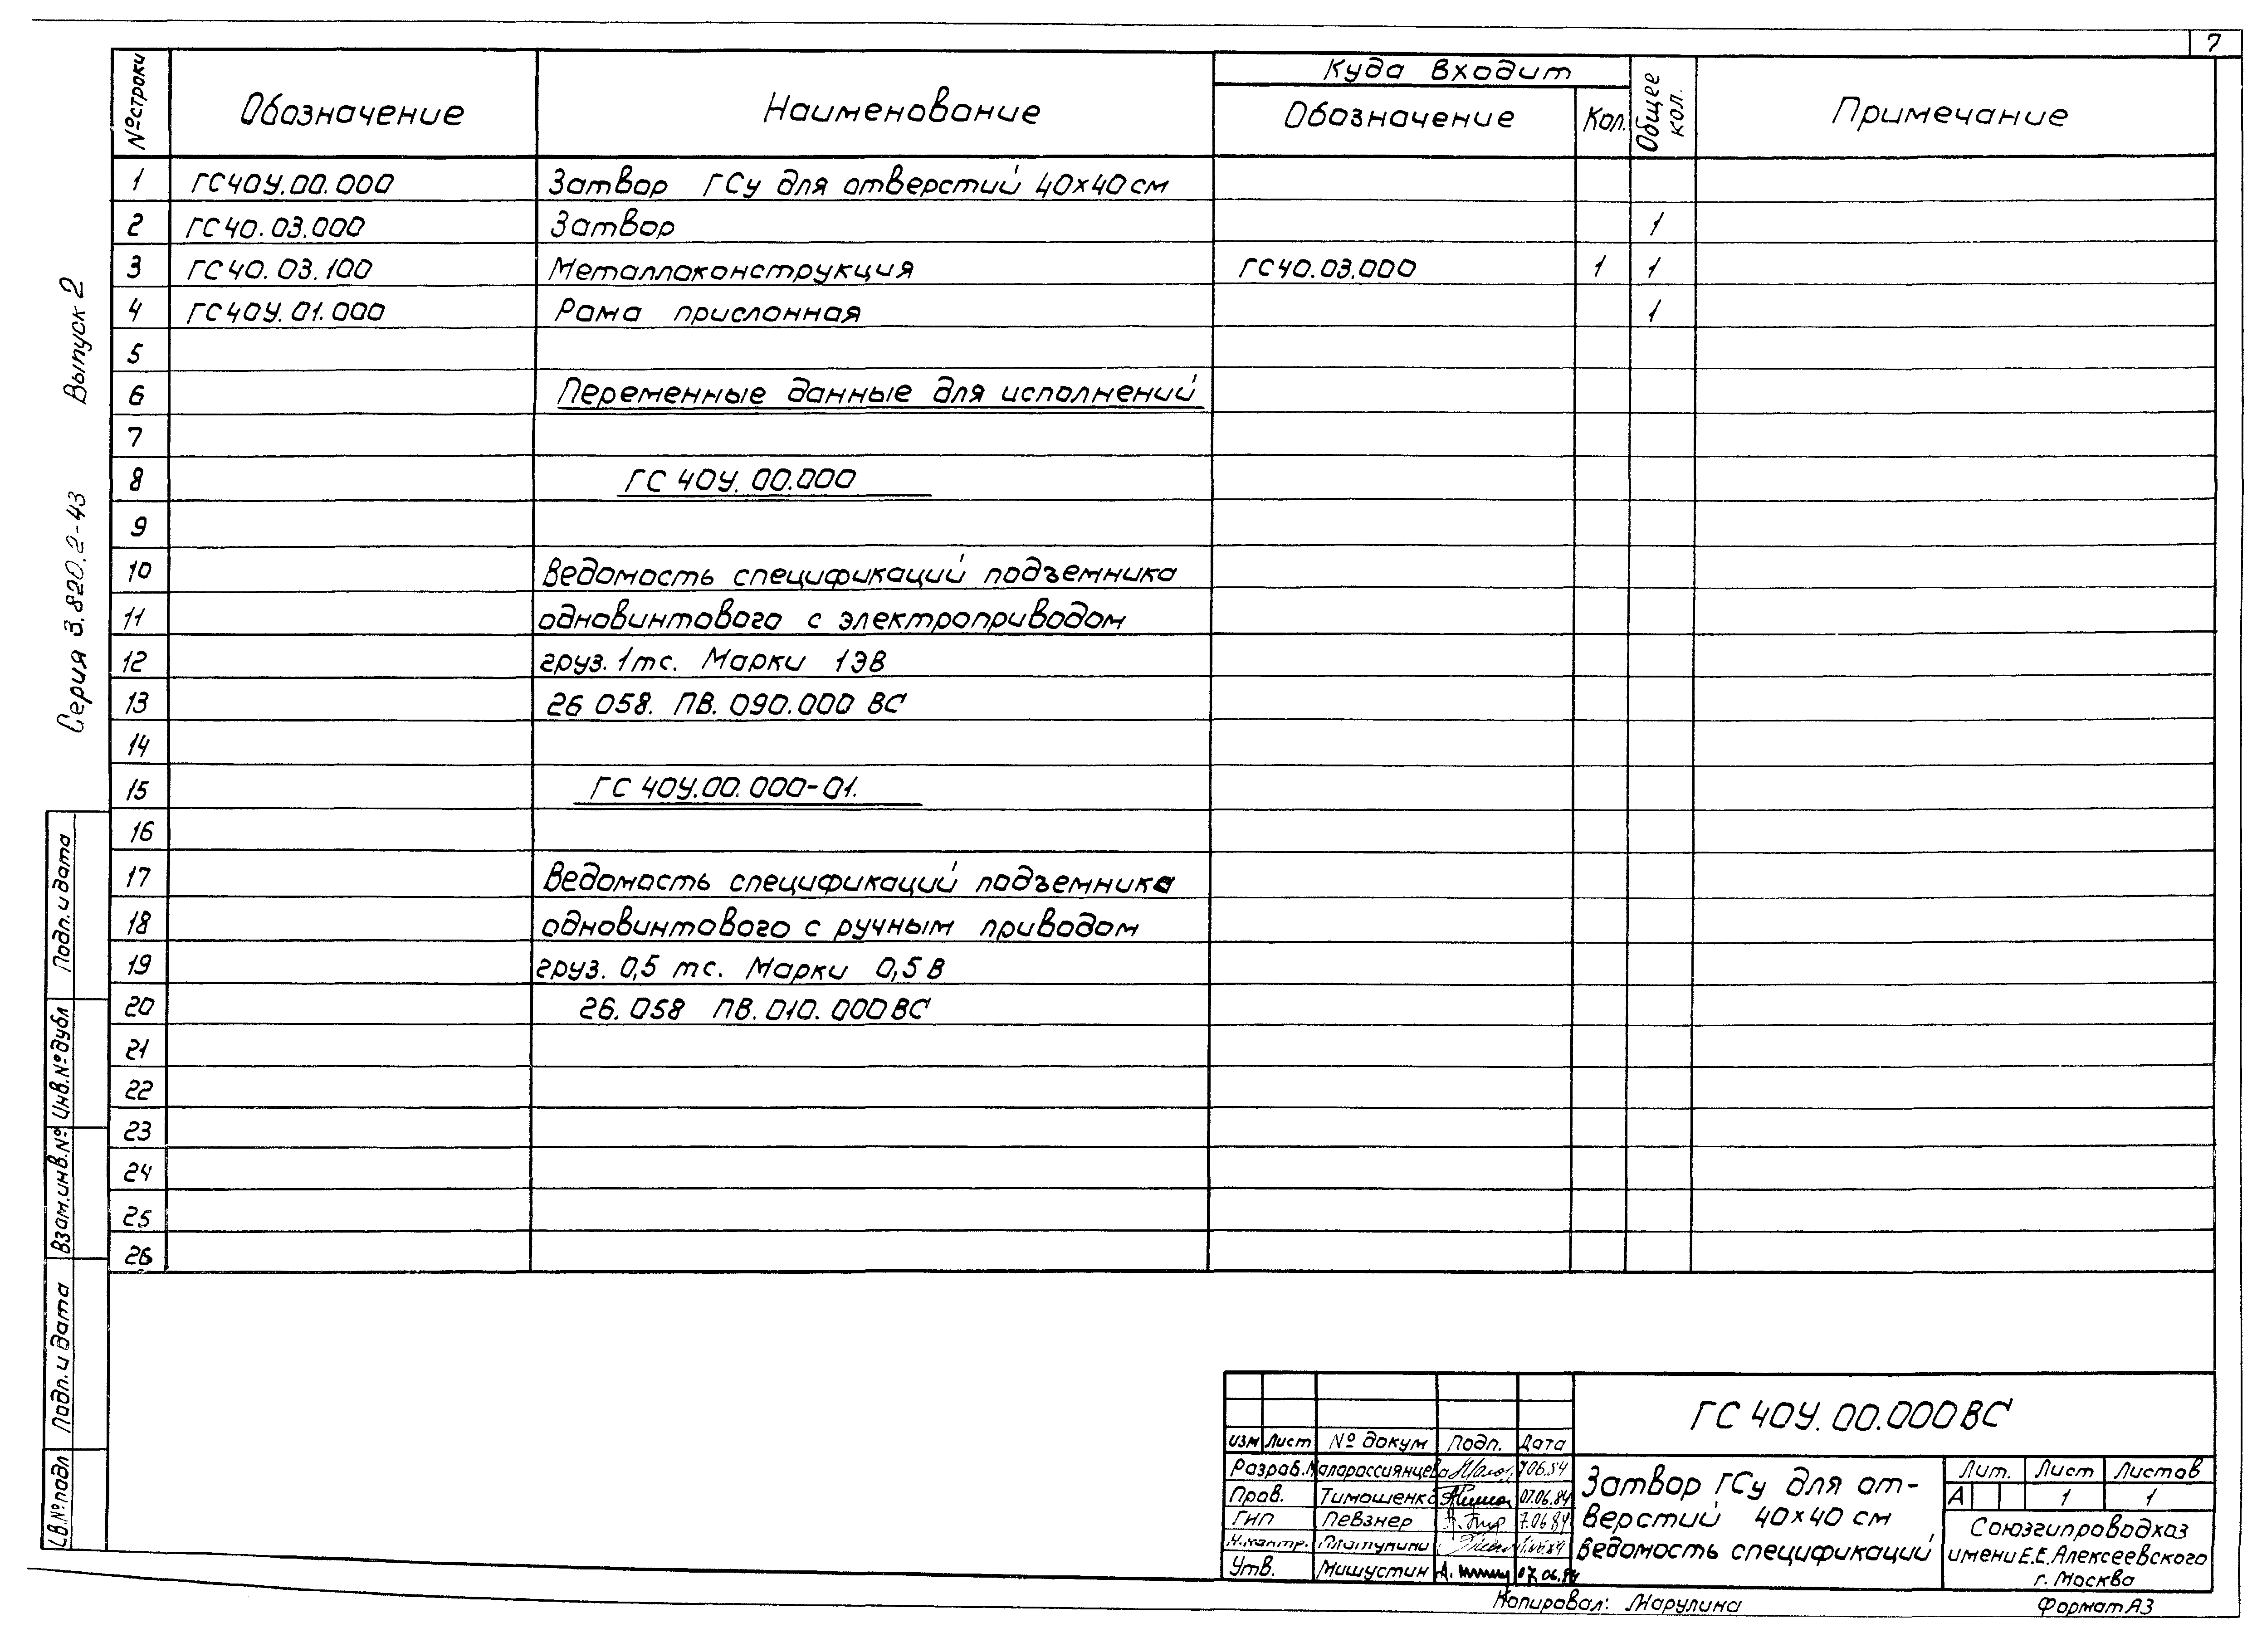 7
№ строки Обозначение Наименование Куда входит Общее кол. Примечание
Обозначение Кол.
1 ГС40У.00.000 Затвор ГСу для отверстий 40×40 см
2 ГС40.03.000 Затвор 1
3 ГС40.03.100 Металлоконструкция ГС40.03.000 1 1
4 ГС40У.01.000 Рама прислонная 1
5
6 Переменные данные для исполнений
7
8 ГС 40У.00.000
9
10 Ведомость спецификаций подъемника
11 одновинтового с электроприводом
12 груз. 1тс. Марки 1ЭВ
13 26 058. ПВ. 090.000 ВС
14
15 ГС 40У.00.000-01.
16
17 Ведомость спецификаций подъемника
18 одновинтового с ручным приводом
19 груз. 0,5 тс. Марки 0,5 В
20 26.058 ПВ.010.000ВС
21
22
23
24
25
26
Серия 3.820.2-43 Выпуск 2
Подп. и дата
Инв.№ дубл
Взам.инв.№
Подп. и дата
В.№ подл
ГС 40У.00.000ВС
изм Лист № докум Подп. Дата
Разраб. Малороссиянцева 7.06.84
Пров. Тимошенко 07.06.84
ГИП Певзнер 7.06.84
Н.контр.
Утв. Мишустин 07.06.84
Затвор ГСу для от-
верстий 40×40 см
ведомость спецификаций
Лит. Лист Листов
А 1 1
Союзгипроводхоз
имени Е.Е.Алексеевского
г. Москва
Копировал: Марулина Формат А3